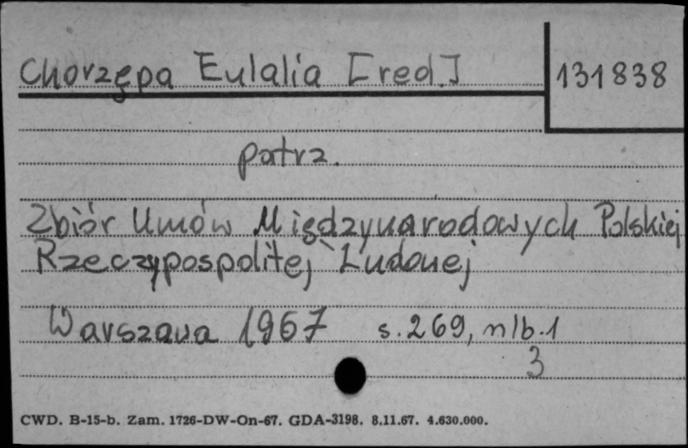 Chorzępa Eulalia [red.] 131838
patrz.
Zbiór Umów Międzynarodowych Polskiej
Rzeczypospolitej Ludowej
Warszawa 1967 s. 269, nlb. 1
3
CWD. B-15-b. Zam. 1726-DW-On-67. GDA-3198. 8.11.67. 4.630.000.